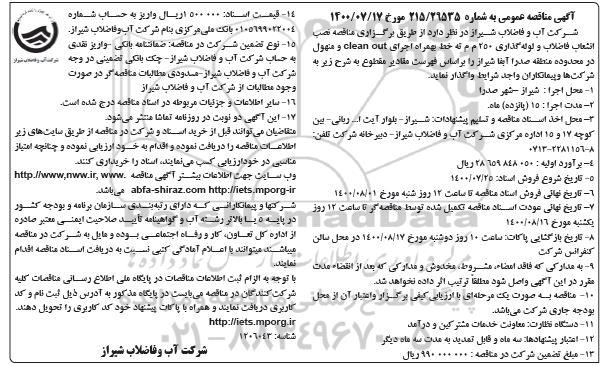 آگهی مناقصه عمومی به شماره ۲۱۵/۲۹۵۳۵ مورخ ۱۴۰۰/۰۷/۱۷
شرکت آب و فاضلاب شیراز در نظر دارد از طریق برگزاری مناقصه نصب
انشعاب فاضلاب و لوله‌گذاری ۲۵۰ م م ته خط بهمراه اجرای clean out و منهول
در محدوده منطقه صدرا آبفا شیراز را براساس فهرست مقادیر مقطوع به شرح زیر به
شرکت‌ها وپیمانکاران واجد شرایط واگذار نماید.
۱– محل اجرا : شیراز –شهر صدرا
۲– مدت اجرا : ۱۵ (پانزده) ماه.
۳– محل اخذ اسناد مناقصه و تسلیم پیشنهادات: شیراز– بلوار آیت ا... ربانی– بین
کوچه ۱۷ و ۱۵ اداره مرکزی شرکت آب و فاضلاب شیراز– دبیرخانه شرکت تلفن:
۰۷۱۳–۲۲۸۱۱۵۶–۸
۴– برآورد اولیه : ۲۸ ۶۵۹ ۸۴۸ ۰۵۰ ریال
۵– تاریخ شروع فروش اسناد: ۱۴۰۰/۰۷/۲۵
۶– تاریخ نهائی فروش اسناد مناقصه تا ساعت ۱۲ روز شنبه مورخ ۱۴۰۰/۰۸/۰۱
۷– تاریخ نهائی عودت اسناد مناقصه تکمیل شده توسط مناقصه‌گر تا ساعت ۱۲ روز
یکشنبه مورخ ۱۴۰۰/۰۸/۱۶
۸– تاریخ بازگشایی پاکات: ساعت ۱۰ روز دوشنبه مورخ ۱۴۰۰/۰۸/۱۷ در محل سالن
کنفرانس شرکت
۹– به مدارکی که فاقد امضاء، مشروط، مخدوش و مدارکی که بعد از انقضاء مدت
مقرر در این آگهی واصل شود مطلقاً ترتیب اثر داده نخواهد شد.
۱۰– مناقصه به صورت یک مرحله‌ای با ارزیابی کیفی برگزار واعتبار آن از محل
بودجه جاری شرکت می‌باشد.
۱۱– دستگاه نظارت: معاونت خدمات مشترکین و درآمد
۱۲– اعتبار پیشنهادها: سه ماه و قابل تمدید به مدت سه ماه دیگر
۱۳– مبلغ تضمین شرکت در مناقصه : ۹۹۰ ۰۰۰ ۰۰۰ ریال
۱۴– قیمت اسناد: ۱ ۵۰۰ ۰۰۰ریال واریز به حساب شماره
۰۱۰۵۶۹۹۰۲۲۰۰۴ بانک ملی‌مرکزی بنام شرکت آب‌وفاضلاب شیراز.
۱۵– نوع تضمین شرکت در مناقصه: ضمانتنامه بانکی –واریز نقدی
به حساب شرکت آب و فاضلاب شیراز– چک بانکی تضمینی در وجه
شرکت آب و فاضلاب شیراز–مسدودی مطالبات مناقصه‌گر در صورت
وجود مطالبات از شرکت آب و فاضلاب شیراز
۱۶– سایر اطلاعات و جزئیات مربوطه در اسناد مناقصه درج شده است.
۱۷– این آگهی دو نوبت در روزنامه تماشا منتشر می‌شود.
متقاضیان می‌توانند قبل از خرید اسناد و شرکت در مناقصه از طریق سایت‌های زیر
اطلاعات مناقصه را دریافت نموده و اقدام به خود ارزیابی نموده و چنانچه امتیاز
مناسبی در خودارزیابی کسب می‌نمایند، اسناد را خریداری کنند.
وب سایت جهت اطلاعات بیشتر آگهی مناقصه http://www.nww.ir, www.
abfa-shiraz.com http://iets.mporg-ir می‌باشد.
شرکتها و پیمانکارانی که دارای رتبه‌بندی سازمان برنامه و بودجه کشور
در پایه ۵ یا بالاتر رشته آب و گواهینامه تأیید صلاحیت ایمنی معتبر صادره
از اداره کل تعاون، کار و رفاه اجتماعی بوده و مایل به شرکت در مناقصه
میباشند میتوانند با اعلام آمادگی کتبی نسبت به دریافت اسناد مناقصه اقدام
نمایند.
با توجه به الزام ثبت اطلاعات مناقصات در پایگاه ملی اطلاع رسانی مناقصات کلیه
شرکت‌کنندگان در مناقصه می‌بایست در پایگاه مذکور به آدرس ذیل ثبت نام و کد
کاربری دریافت نمایند و همراه با پاکات پیشنهاد خود کد کاربری را تحویل دهند.
http://iets.mporg.ir
شناسه: ۱۲۰۶۰۴۳
شرکت آب وفاضلاب شیراز
شرکت آب و فاضلاب شیراز
۰۲۱–۸۸۳۴۹۶۷۰